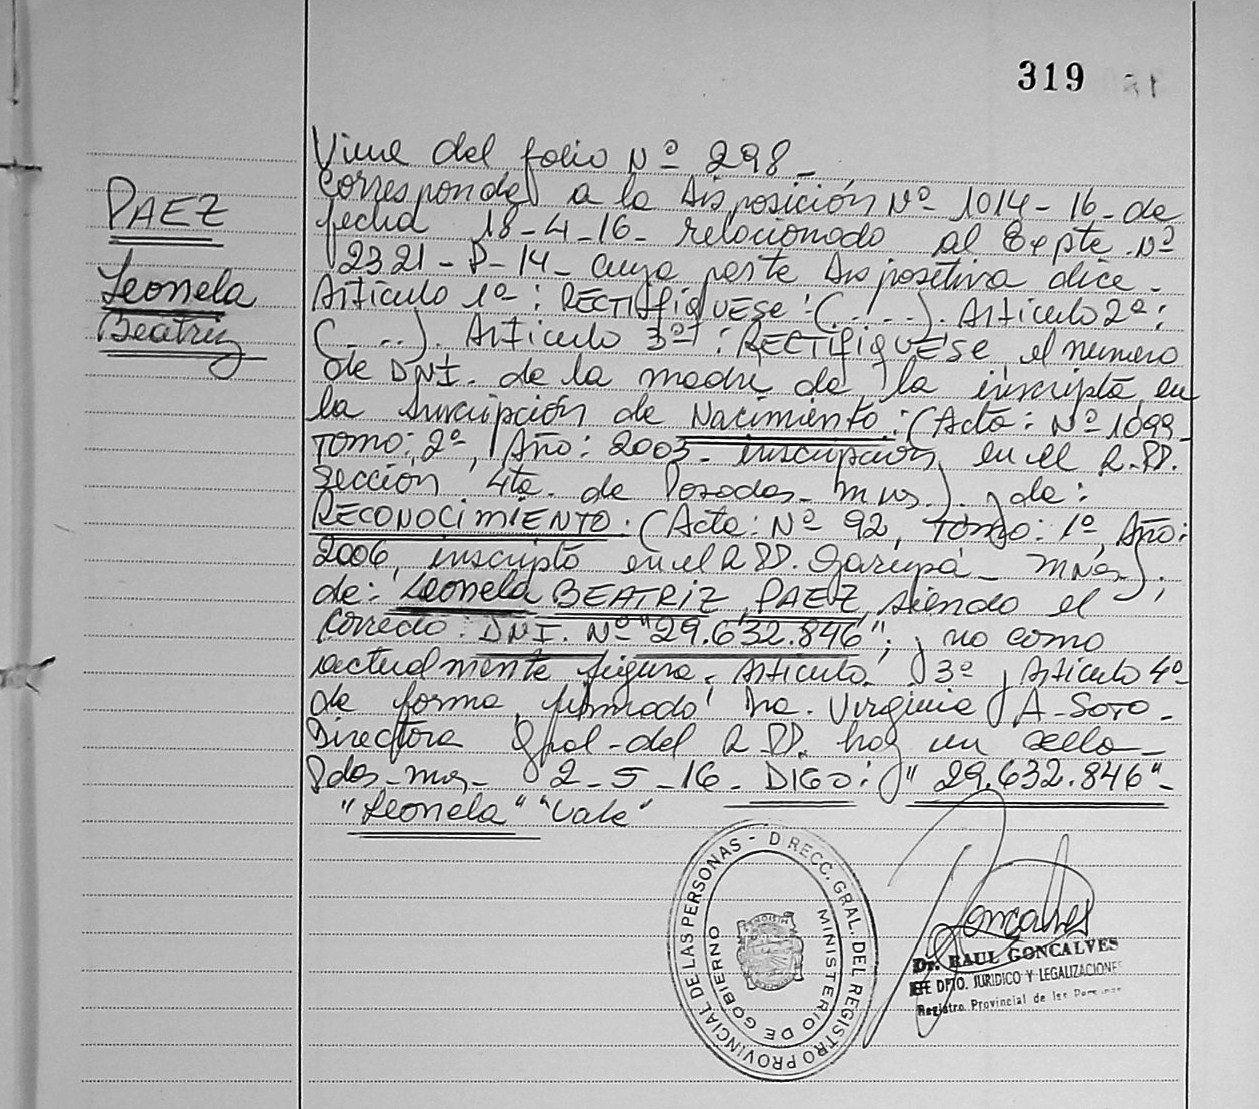 319
PAEZ
Leonela
Beatriz
Viene del folio Nº 298_
Corresponde a la Disposición Nº 1014-16-de
fecha 18-4-16- relacionado al Expte. Nº
2321-P-14- cuya parte dispositiva dice-
Artículo 1º: RECTIFIQUESE: (.....). Artículo 2º:
(....). Artículo 3º: RECTIFIQUESE el número
de DNI. de la madre de la inscripta en
la inscripción de Nacimiento: (Acta: Nº 1099-
Tomo: 2º, Año: 2003- inscripción en el R.PP.
Sección 4ta. de Posadas- Mnes) y de:
RECONOCIMIENTO: (Acta: Nº 92, Tomo: 1º, Año:
2006, inscripto en el R PP. Garupá- Mnes),
de: Leonela BEATRIZ PAEZ, siendo el
Correcto: DNI. Nº "29.632.846"; y no como
actualmente figura. Artículo 3º y Artículo 4º-
de forma, firmado Dra. Virginia A-SOTO-
Directora Gral-del R PP. hay un sello-
Pdas-mns- 2-5-16- DIGO: "29.632.846"-
"Leonela" "Vale"
DIRECC. GRAL. DEL REGISTRO PROVINCIAL DE LAS PERSONAS -
MINISTERIO DE GOBIERNO
MISIONES
Goncalves
Dr. RAUL GONCALVES
JEFE DPTO. JURIDICO Y LEGALIZACIONES
Registro Provincial de las Personas